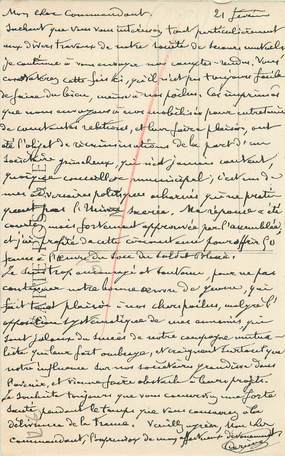 Mon cher Commandant. 21 février
Sachant que vous vous intéressez tout particulièrement
aux divers travaux de notre société de secours mutuels
je continue à vous envoyer nos comptes-rendus. Vous
constaterez cette fois-ci, qu'il n'est pas toujours facile
de faire du bien, même à nos poilus. Ces imprimés
que nous envoyons à nos mobilisés pour entretenir
de constantes relations, et leur faire plaisir, ont
été l'objet de récriminations de la part d'un
sociétaire grincheux, qui n'est jamais content,
quoique conseiller municipal; c'est un de
mes adversaires politiques acharnés qui ne pratiquent
pas l'Union sacrée. Ma réponse a été
courte mais fortement approuvée par l'assemblée,
et j'ai profité de cette circonstance pour offrir 50
francs à l'œuvre du soldat blessé.
La doit trop encouragés et soutenus, pour ne pas
continuer notre bonne œuvre de guerre, qui
fait tant plaisir à nos chers poilus, malgré l'
opposition systématique de mes ennemis, qui
sont jaloux du succès de notre campagne
qu'on leur fait ombrage, et craignant surtout que
notre influence sur nos sociétaires grandisse dans
l'avenir, et vienne faire obstacle à leurs projets.
Je souhaite toujours que vous conserviez une forte
santé pendant le temps que vous consacrez à la
délivrance de la France. Veuillez agréer, Mon cher
commandant, l'expression de mes